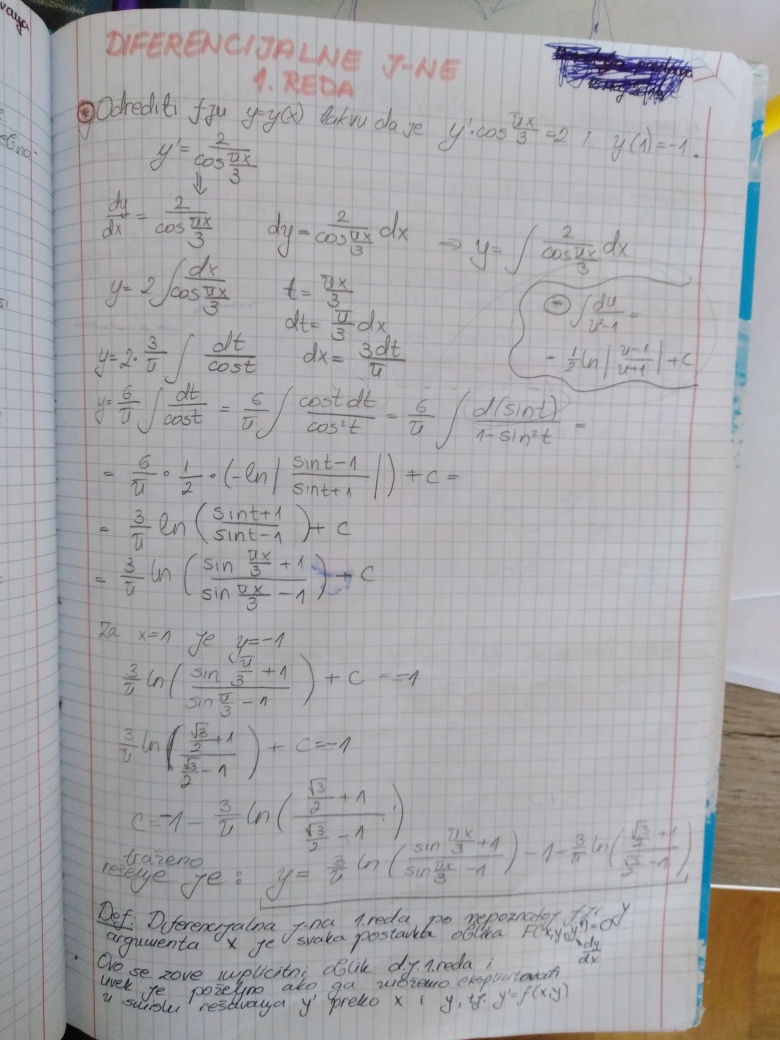 DIFERENCIJALNE J-NE
1. REDA
* Odrediti f-ju y=y(x) takvu da je y'·cos πx/3 = 2 i y(1)=-1.
y' = 2/(cos πx/3)
⇓
dy/dx = 2/(cos πx/3) dy = 2/(cos πx/3) dx ⇒ y = ∫ 2/(cos πx/3) dx
y = 2∫ dx/(cos πx/3) t = πx/3
dt = π/3 dx
y = 2·3/π ∫ dt/cost dx = 3dt/π
* ∫ du/(u²-1) =
= 1/2 ln|(u-1)/(u+1)| + c
y = 6/π ∫ dt/cost = 6/π ∫ cost dt/cos²t = 6/π ∫ d(sint)/(1-sin²t) =
= 6/π · 1/2 · (-ln|(sint-1)/(sint+1)|) + c =
= 3/π ln((sint+1)/(sint-1)) + c
= 3/π ln((sin πx/3 + 1)/(sin πx/3 - 1)) + c
Za x=1 je y=-1
3/π ln((sin π/3 + 1)/(sin π/3 - 1)) + c = -1
3/π ln((√3/2 + 1)/(√3/2 - 1)) + c = -1
c = -1 - 3/π ln((√3/2 + 1)/(√3/2 - 1))
traženo
rešenje je: y = 3/π ln((sin πx/3 + 1)/(sin πx/3 - 1)) - 1 - 3/π ln((√3/2 + 1)/(√3/2 - 1))
Def: Diferencijalna j-na 1. reda po nepoznatoj f-ji y
argumenta x je svaka postavka oblika F(x,y,y')=0
dy/dx
Ovo se zove implicitni oblik d.j. 1. reda i
uvek je poželjno ako ga možemo
u smislu rešavanja y' preko x i y, tj. y'=f(x,y)